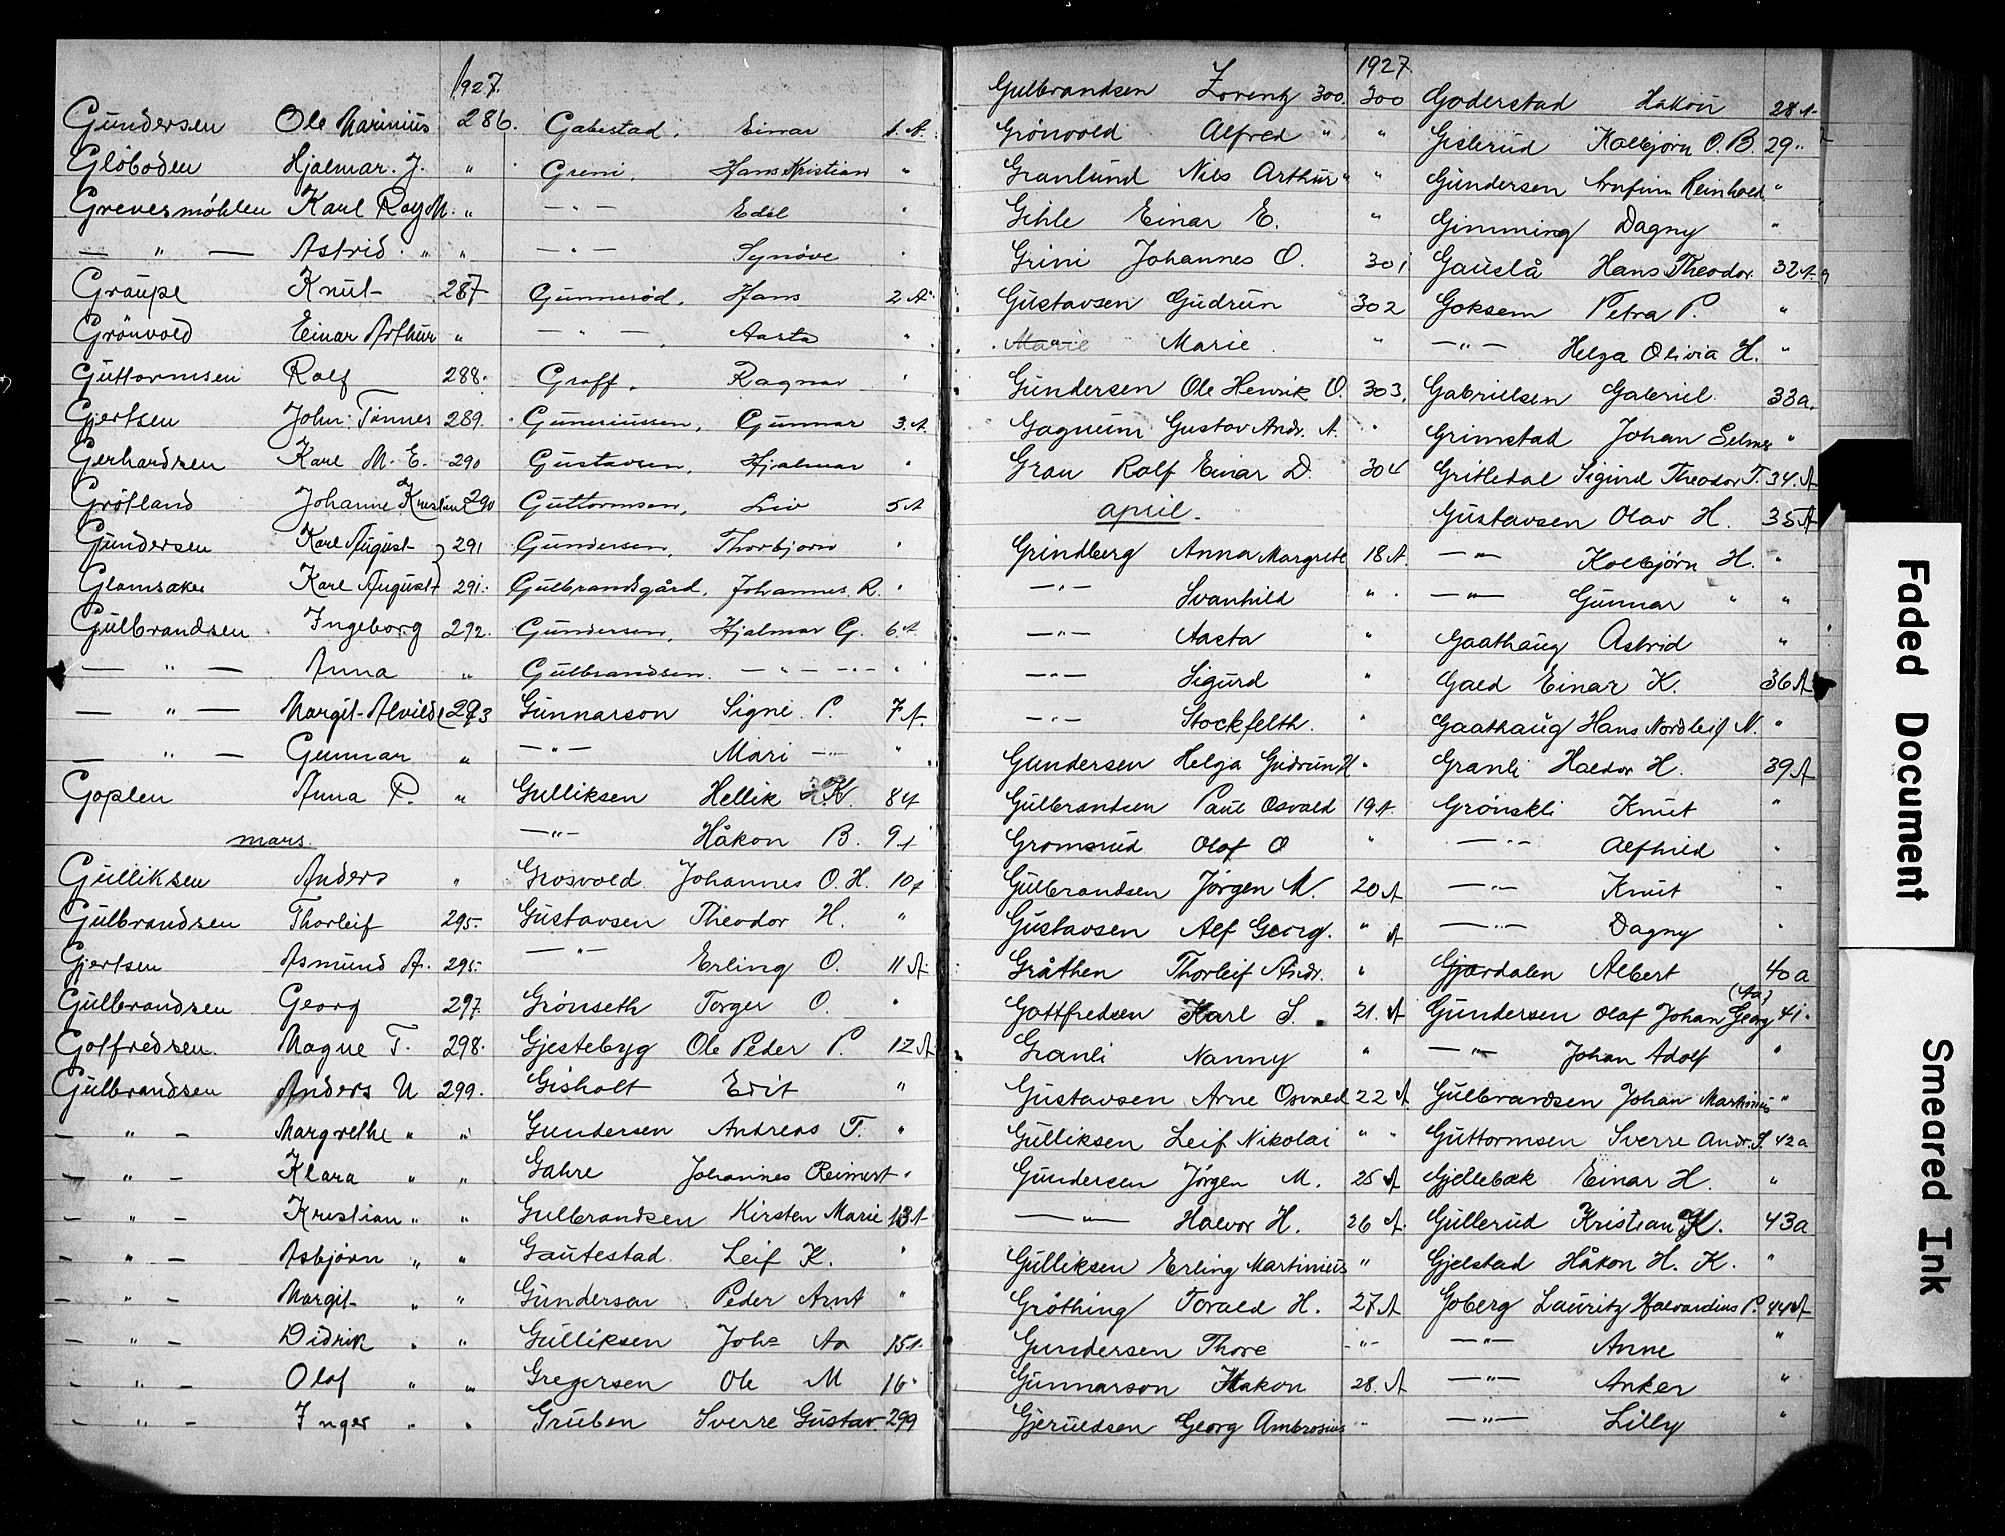 1927.
Gundersen Ole Marinius 286.
Glöboden Hjalmar. J. "
Grevesmöhlen Karl Roy M. "
— " — Astrid " "
Graupe Knut 287
Grönvold Einar Arthur "
Guttormsen Rolf 288.
Gjertsen John Tönnes 289.
Gerhardsen Karl M. E. 290
Grötland Johanne Kristine 290
Gundersen Karl August 291
Glamsaker Karl August 291.
Gulbrandsen Ingeborg 292.
— " — Anna "
— " — Margit Alvilde 293
— " — Gunnar "
Goplen Anna P. "
mars.
Gulliksen Anders "
Gulbrandsen Thorleif 295.
Gjertsen Asmund A. 295.
Gulbrandsen Georg 297.
Gotfredsen. Magne T. 298.
Gulbrandsen Anders U 299.
— " — Margrethe " "
— " — Klara " "
— " — Kristian " "
— " — Asbjörn " "
— " — Margit " "
— " — Didrik " "
— " — Olaf " "
— " — Inger " "
Gabestad, Einar 1. A.
Greni, Hans Kristian "
— " — Edel "
— " — Synöve "
Gunneröd, Hans 2 A.
— " —, Aasta "
Graff, Ragnar "
Gunniussen, Gunnar 3. A.
Gustavsen, Hjalmar "
Guttormsen, Liv 5 A
Gundersen, Thorbjorn "
Gulbrandsgård, Johannes. R. "
Gundersen, Hjalmar G. 6. A
Gulbrandsen. — " — — " — "
Gunnarson Signe P. 7 A.
— " — Mari — " — "
Gulliksen Hellik K. 8 A
— " — Håkon B. 9 A
Grosvold Johannes O. H. 10 A
Gustavsen Theodor H. "
— " — Erling O. 11 A
Grönseth Torger O. "
Gjestebyg Ole Peder P. 12 A
Gisholt Erit "
Gundersen Andreas T. "
Gahre Johannes Reimert "
Gulbrandsen Kirsten Marie 13 A
Gautestad Leif K. "
Gundersen Peder Arnt "
Gulliksen Joh= Aa 15 A.
Gregersen Ole M 16 "
Gruben Sverre Gustav. 299
1927.
Gulbrandsen Lorentz 300. 300
Grönvold Alfred " "
Granlund Nils Arthur " "
Gihle Einar E. "
Grini Johannes O. 301
Gustavsen Gudrun 302
Marie " Marie "
Gundersen Ole Henrik O. 303.
Gagnum Gustav Andr. A. "
Gran Rolf Einar D. 304
april.
Grindberg Anna Margrete 18 A.
— " — Svanhild "
— " — Aasta "
— " — Sigurd "
— " — Stockfelth. "
Gundersen Helga Gudrun H "
Gulbrandsen Paul Osvald 19 A.
Gromsrud Olaf O "
Gulbrandsen Jörgen M. 20 A
Gustavsen Alf Georg. " A
Gråthen Thorleif Andr. "
Gottfredsen Karl S. 21. A
Granli Nanny "
Gustavsen Arne Osvald 22 A.
Gulliksen Leif Nikolai " "
Gundersen Jörgen M. 25 A
— " — Halvor H. 26 A.
Gulliksen Erling Martinius "
Gröthing Torald H. 27 A
Gundersen Thore — " —
Gunnarson Hakon 28. A
Gjeruldsen Georg Ambrosius "
Goderstad Hakon 28 A
Gislerud Kolbjörn O. B. 29 "
Gundersen Arnfinn Reinhold "
Gimming Dagny "
Gauslå Hans Theodor. 32 A
Goksem Petra P. "
— " — Helga Olivia H. "
Gabrielsen Gabriel. 33 a.
Grimstad Johan Selmer "
Gritledal Sigurd Theodor T. 34. A
Gustavsen Olav H. 35 A
— " — Kolbjörn H. "
— " — Gunnar " "
Gaathaug Astrid "
Gaed Einar K. 36 A
Gaathaug Hans Nordleif N. "
Granli Haldor H. 39 A
Grönskli Knut "
— " — Alfhild "
— " — Knut "
— " — Dagny "
Gjørdalen Albert 40 a
Gundersen Olaf Johan Georg (Aa) 41 "
— " — Johan Adolf "
Gulbrandsen Johan Martinius "
Guttormsen Sverre Andr. S. 42 a
Gjellebæk Einar H. "
Gullerud Kristian K. 43 a
Gjelstad Håkon H. K. "
Goberg Lauritz Halvardius P. 44 A
— " — Anne "
— " — Anker "
— " — Lilly "
Faded Document
Smeared Ink